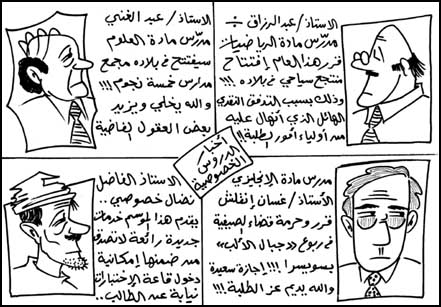 الاستاذ/عبد الرزاق
مدرّس مادة الرياضيات
قرر هذا العام إفتتاح
منتجع سياحي في بلاده !!!
وذلك بسبب التدفق النقدي
الهائل الذي انهال عليه
من أولياء أمور الطلبة !!
الاستاذ/عبد الغني
مدرّس مادة العلوم
سيفتتح في بلاده مجمع
مدارس خمسة نجوم !!!
والله يخلي ويزيد
بعض العقول الفاضية
أخبار
الدروس
الخصوصية
مدرس مادة الإنجليزي
الأستاذ/غسان إنفلش
قرر وحرمه قضاء لصيفية
في ربوع «جبال الألب»
بسويسرا !!! إجازة سعيدة
والله يديم عز الطلبة !!!
الاستاذ الفاضل
نضال خصوصي ..
يقدم هذا الموسم خدمات
جديدة رائعة لاتصدق
من ضمنها إمكانية
دخول قاعة الإختبارات
نيابة عن الطالب..